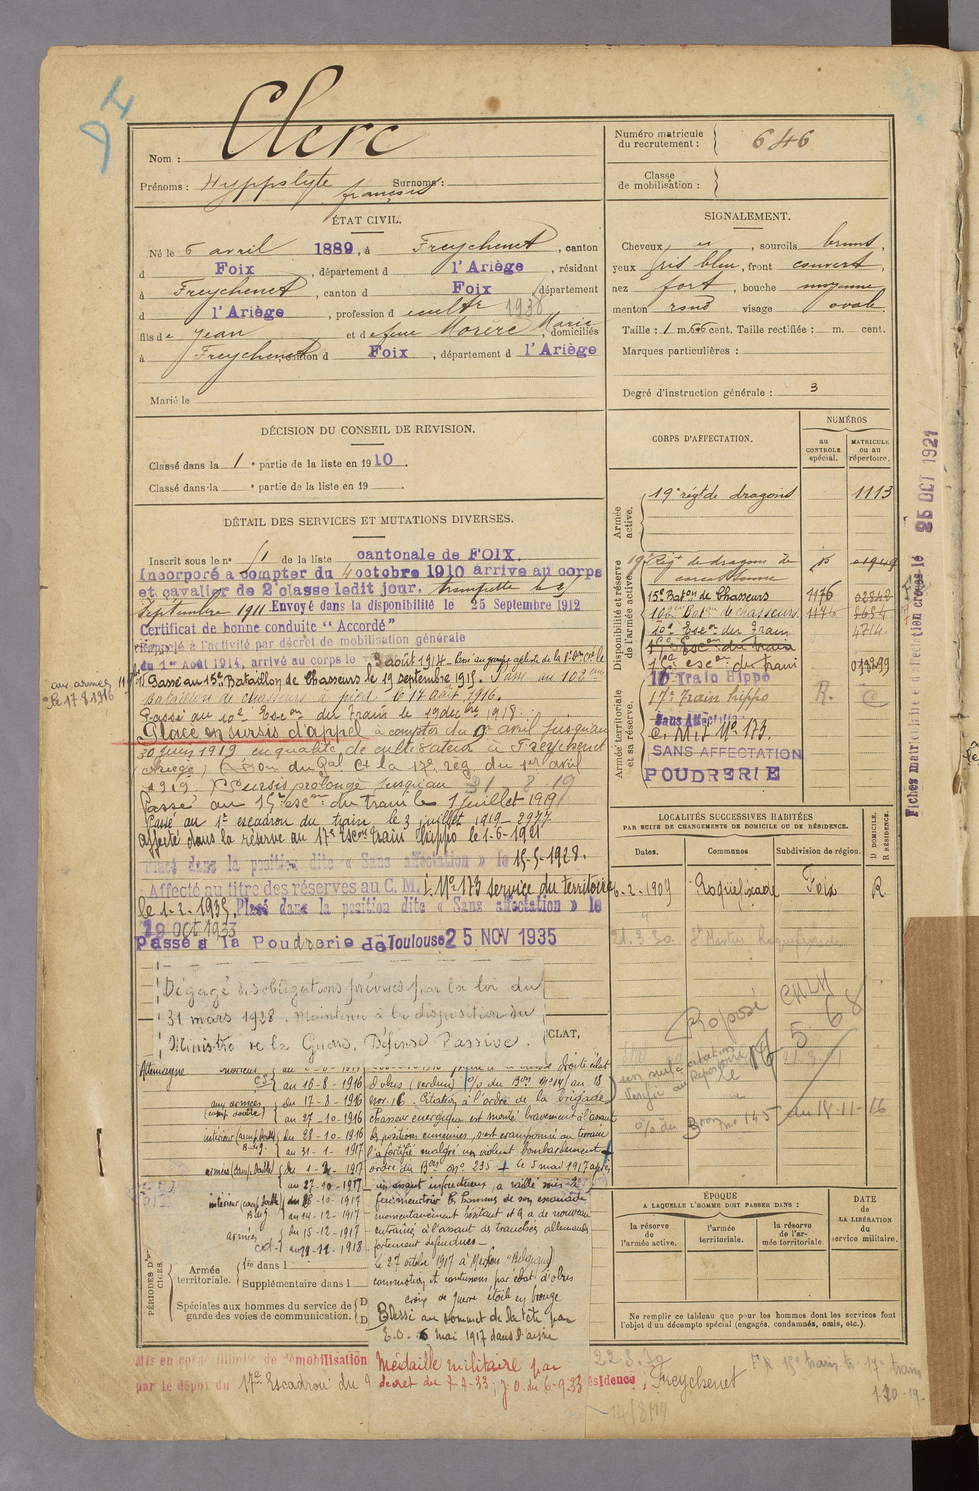 Clerc
Nom :
Prénoms : Hyppolyte françois Surnoms :
ÉTAT CIVIL.
Né le 6 avril 1889, à Freychenet, canton
d Foix, département d l'Ariège, résidant
à Freychenet, canton d Foix, département
d l'Ariège, profession d cultr 1938
fils de Jean et de feue Morère Marie, domiciliés
à Freychenet canton d Foix, département d l'Ariège
Marié le
DÉCISION DU CONSEIL DE REVISION.
Classé dans la 1e partie de la liste en 1910.
Classé dans la e partie de la liste en 19 .
DÉTAIL DES SERVICES ET MUTATIONS DIVERSES.
Inscrit sous le n° 51 de la liste cantonale de FOIX.
Incorporé à compter du 4 octobre 1910 arrivé au corps
et cavalier de 2e classe ledit jour. trompette le
septembre 1911 Envoyé dans la disponibilité le 25 Septembre 1912
Certificat de bonne conduite "Accordé"
Rappelé à l'activité par décret de mobilisation générale
du 1er Août 1914, arrivé au corps le 3 août 1914
Passé au 15e Bataillon de Chasseurs le 19 septembre 1915. Passé au 102e
Bataillon de chasseurs à pied le 17 août 1916.
aux armées
le 17 8 1916
Passé au 10e Escon du Train le 19 décbre 1918.
Placé en sursis d'appel à compter du 9 avril jusqu'au
30 juin 1919 en qualité de cultivateur à Freychenet
(Ariège) (Décon du Gal Ct la 17e rég. du 1er avril
1919. Sursis prolongé jusqu'au 31 8 19
Passé au 15e escon du train le 1 juillet 1919
Passé au 1e escadron du train le 3 juillet 1919 - 2977
affecté dans la réserve au 17e Escon train hippo le 1-6-1921
Placé dans la position dite « Sans affectation » le 15-5-1928.
Affecté au titre des réserves au C. M. I. N° 173 service du territoire
le 1-2-1935. Placé dans la position dite « Sans affectation » le
19 OCT 1933
Passé à la Poudrerie de Toulouse 25 NOV 1935
Dégagé d'obligations prévues par la loi du
31 mars 1928. Maintenu à la disposition du
Ministre de la Guerre. Défense Passive.
CLAT,
Allemagne
au 16-8-1916
aux armées (camp. double) du 17-8-1916
au 27-10-1916
intérieur (camp. double) Blés. du 28-10-1916
au 31-1-1917
armée (camp. double) du 1-2-1917
au 27-10-1917
intérieur (camp. double) Blés. du 28-10-1917
au 14-12-1917
armées du 15-12-1917
cd. au 29-11-1918
droite éclat
d'obus (Verdun) o/o du Bon N° 14 / au 18
nov. 16. Citation à l'ordre de la brigade
chasseur énergique est monté bravement à l'assaut
des positions ennemies, s'est cramponné au terrain
l'a fortifié malgré un violent bombardement +
ordre du Bon N° 235 + le 5 mai 1917 après
un assaut infructueux, a rallié sous le
feu meurtrier les hommes de son escouade
momentanément hésitant et les a de nouveau
entraînés à l'assaut de tranchées allemandes
fortement défendues -
Le 27 octobre 1917 à Merken (Belgique)
commotion et contusions par éclat d'obus
croix de guerre étoile en bronze
Blessé au sommet de la tête par
E.O. 6 mai 1917 dans l'aisne
Médaille militaire par
décret du 7-7-33; J.O. du 6-9-33
PÉRIODES D'EXERCICES.
Armée territoriale. 1re dans l
Supplémentaire dans l
Spéciales aux hommes du service de garde des voies de communication.
Mis en congé illimité de démobilisation
par le dépôt du 17e Escadron du
résidence, Freychenet
22.3.30
14/8/19
Numéro matricule du recrutement : 646
Classe de mobilisation :
SIGNALEMENT.
Cheveux , sourcils bruns,
yeux gris bleu, front couvert,
nez fort, bouche moyenne
menton rond visage ovale
Taille : 1 m. 66 cent. Taille rectifiée : m. cent.
Marques particulières :
Degré d'instruction générale : 3
CORPS D'AFFECTATION.
NUMÉROS
au CONTROLE spécial.
MATRICULE ou au répertoire.
Armée active.
19e régt de dragons 1113
Disponibilité et réserve de l'armée active.
19e Régt de dragons de
carcassonne
15e Baton de Chasseurs 1176
102e Baton de chasseurs 1176
10e Escon du Train 4714.
15e Escon du train
1er escon du train
Armée territoriale et sa réserve.
17 Train Hippo
17e Train hippo R.
Sans Affectation
C. M. I. N° 173.
SANS AFFECTATION
POUDRERIE
LOCALITÉS SUCCESSIVES HABITÉES
PAR SUITE DE CHANGEMENTS DE DOMICILE OU DE RÉSIDENCE.
Dates. Communes Subdivision de région. D DOMICILE. R RÉSIDENCE.
6-2-1909 Roquefixade Foix R
21.3.30 St Martin
Proposé
o/o du Bron N° 145 du 18-11-16
ÉPOQUE
A LAQUELLE L'HOMME DOIT PASSER DANS :
la réserve de l'armée active.
l'armée territoriale.
la réserve de l'armée territoriale.
DATE DE LA LIBÉRATION du service militaire.
Ne remplir ce tableau que pour les hommes dont les services font
l'objet d'un décompte spécial (engagés, condamnés, omis, etc.).
Fiches matriculaire et d'affectation créées le 25 OCT 1921